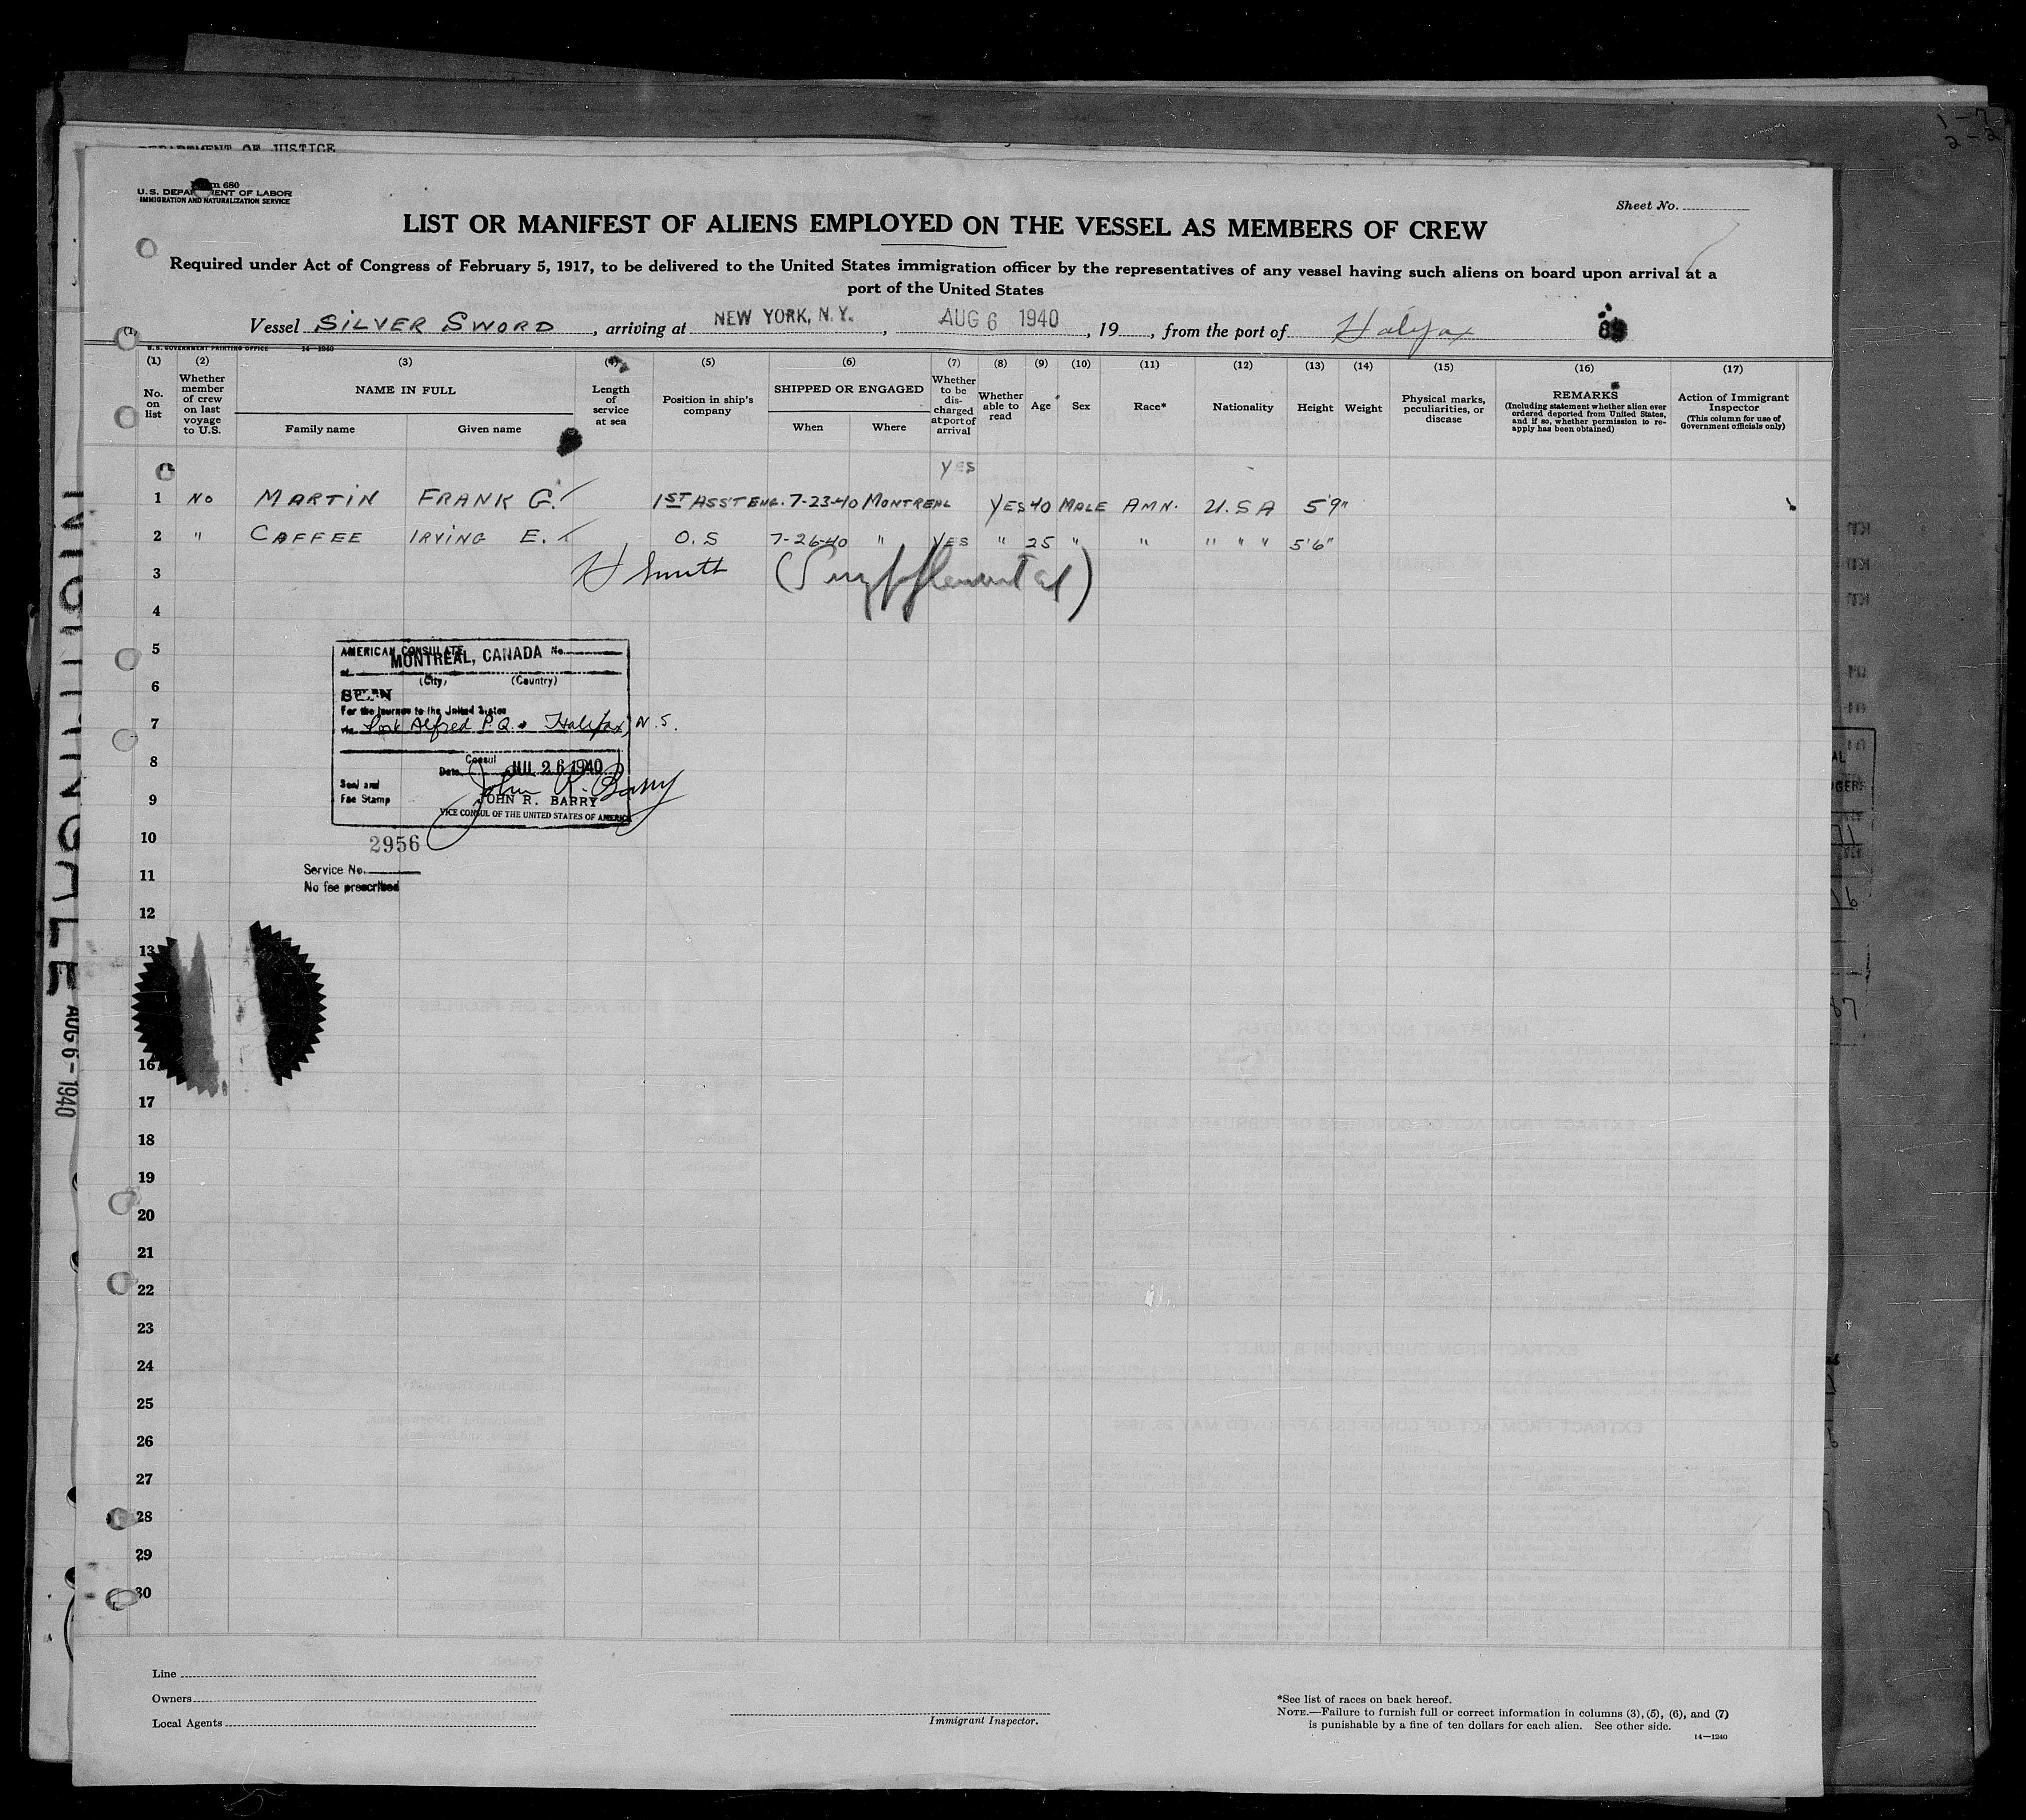 DEPARTMENT OF JUSTICE
1-7
2-2
Form 680
U. S. DEPARTMENT OF LABOR
IMMIGRATION AND NATURALIZATION SERVICE
Sheet No.
LIST OR MANIFEST OF ALIENS EMPLOYED ON THE VESSEL AS MEMBERS OF CREW
Required under Act of Congress of February 5, 1917, to be delivered to the United States immigration officer by the representatives of any vessel having such aliens on board upon arrival at a
port of the United States
Vessel SILVER SWORD, arriving at NEW YORK, N.Y., AUG 6 1940, 19, from the port of Halifax
U. S. GOVERNMENT PRINTING OFFICE 14—1240
(1) (2) (3) (4) (5) (6) (7) (8) (9) (10) (11) (12) (13) (14) (15) (16) (17)
No. on list
Whether member of crew on last voyage to U.S.
NAME IN FULL
Family name Given name
Length of service at sea
Position in ship's company
SHIPPED OR ENGAGED
When Where
Whether to be dis-charged at port of arrival
Whether able to read
Age Sex Race* Nationality Height Weight
Physical marks, peculiarities, or disease
REMARKS
(Including statement whether alien ever ordered deported from United States, and if so, whether permission to re-apply has been obtained)
Action of Immigrant Inspector
(This column for use of Government officials only)
YES
1 No MARTIN FRANK G. 1ST ASS'T ENG. 7-23-40 MONTREAL YES 40 MALE AMN. U.S.A 5'9"
2 " CAFFEE IRVING E. O.S 7-26-40 " YES " 25 " " " " " 5'6"
3 H Smith (Supplemental)
4
5
6
7
8
9
10
11
12
13
16
17
18
19
20
21
22
23
24
25
26
27
28
29
30
AMERICAN CONSULATE No.
at MONTREAL, CANADA
(City) (Country)
SEEN
For the journey to the United States
via Port Alfred P.Q. & Halifax, N.S.
Consul
Date JUL 26 1940
John R. Barry
Seal and
Fee Stamp
JOHN R. BARRY
VICE CONSUL OF THE UNITED STATES OF AMERICA
2956
Service No.
No fee prescribed
NIGHTINGALE AUG 6-1940
Line
Owners
Local Agents
Immigrant Inspector.
*See list of races on back hereof.
NOTE.—Failure to furnish full or correct information in columns (3), (5), (6), and (7)
is punishable by a fine of ten dollars for each alien. See other side.
14—1240